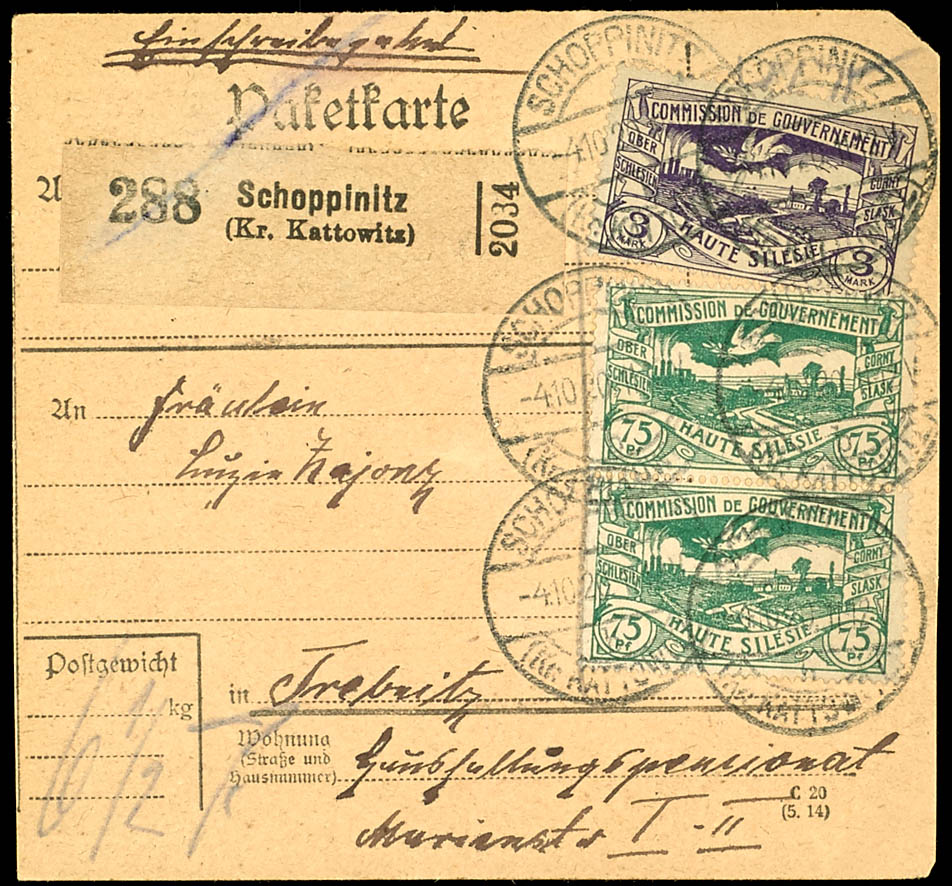 Einschreibepaket
Paketkarte
288 Schoppinitz
(Kr. Kattowitz)
2034
SCHOPPINITZ
-4.10.20
COMMISSION DE GOUVERNEMENT
OBER SCHLESIEN
GORNY SLASK
HAUTE SILÉSIE
3 MARK 3 MARK
SCHOPPINITZ
-4.10.20
COMMISSION DE GOUVERNEMENT
OBER SCHLESIEN
GORNY SLASK
HAUTE SILÉSIE
75 Pf 75 Pf
An Fräulein
Luzie Zajonz
SCHOPPINITZ
-4.10.20
(Kr. KATTOWITZ)
COMMISSION DE GOUVERNEMENT
OBER SCHLESIEN
GORNY SLASK
HAUTE SILÉSIE
75 Pf 75 Pf
Postgewicht
kg
in Trebnitz
Wohnung
(Straße und
Hausnummer)
Haushaltungspensionat
C 20
(5. 14)
Marienstr I-II